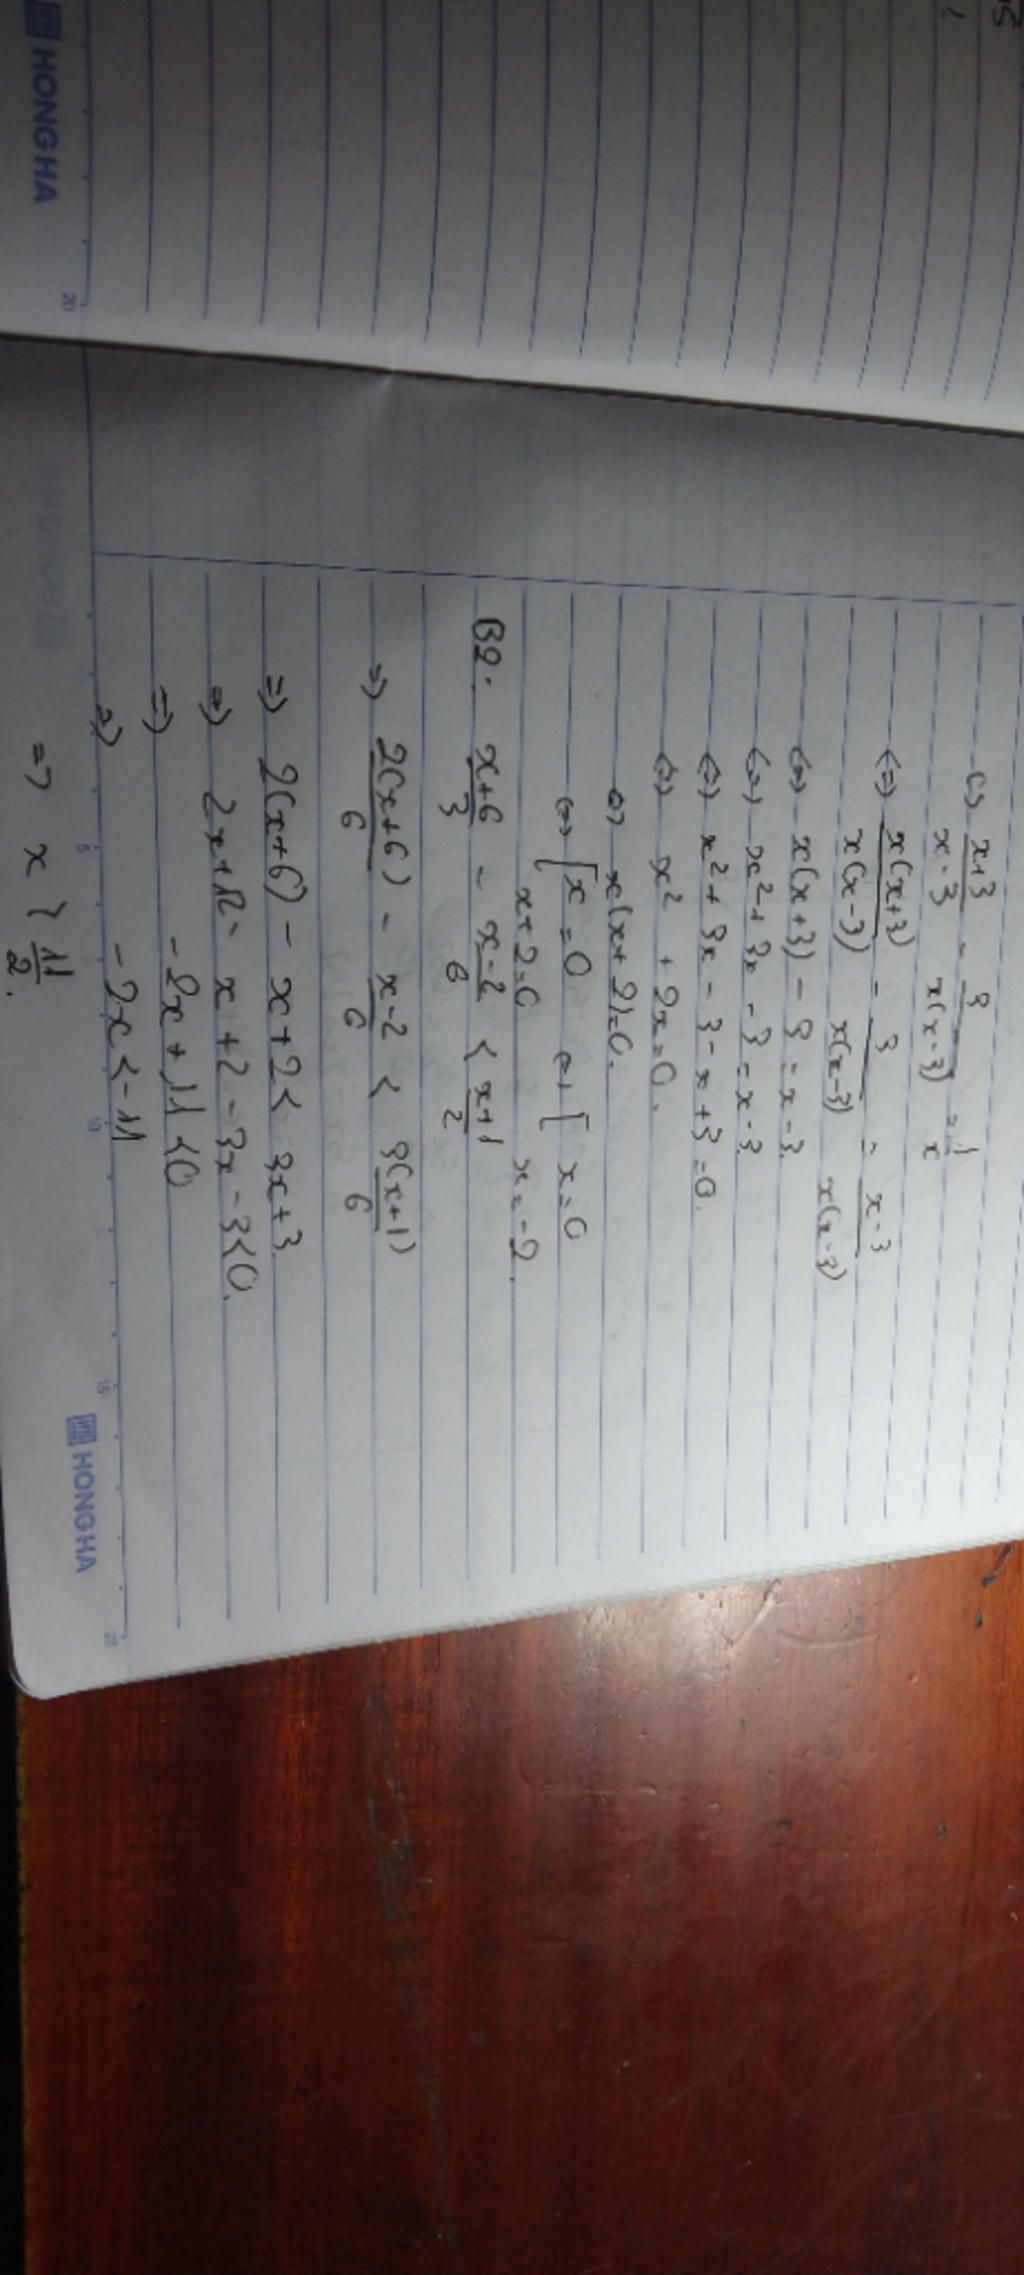 c) \frac{x+3}{x-3} - \frac{3}{x(x-3)} = \frac{1}{x}
(=) \frac{x(x+3)}{x(x-3)} - \frac{3}{x(x-3)} = \frac{x-3}{x(x-3)}
(=) x(x+3) - 3 = x-3
(=) x² + 3x - 3 = x-3
(=) x² + 3x - 3 - x + 3 = 0.
(=) x² + 2x = 0.
(=) x(x+2) = 0.
(=) [ x = 0 (=) [ x = 0
x+2=0 x = -2.
B2: \frac{x+6}{3} - \frac{x-2}{6} < \frac{x+1}{2}
=) \frac{2(x+6)}{6} - \frac{x-2}{6} < \frac{3(x+1)}{6}
=) 2(x+6) - x+2 < 3x+3
=) 2x+12 - x+2 - 3x - 3 < 0.
=) -2x + 11 < 0
=) -2x < -11
=> x > \frac{11}{2}.
HONG HA
HONG HA
5
10
15
20
20